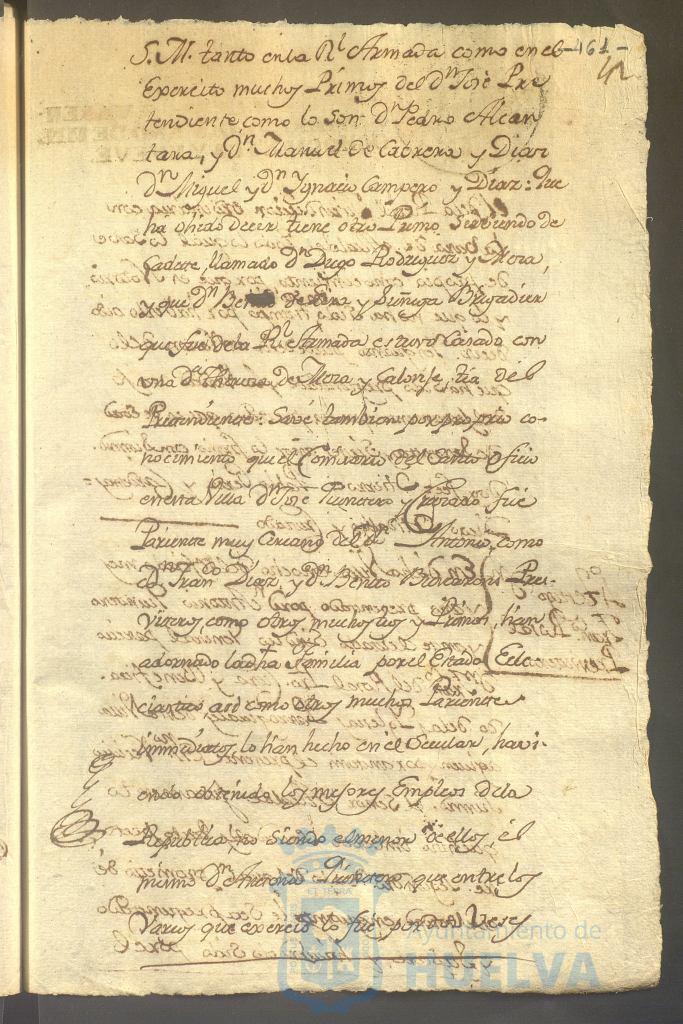 -461-
S. M. tanto en la Rl. Armada como en el
Exercito muchos Primos del Dn. José Pre
tendiente como lo son Dn. Pedro Alcan
tara, y Dn. Manuel de Cabrera y Diaz
Dn. Miguel y Dn. Ygnacio Campero y Diaz: Que
ha ohido decir tiene otro Primo Sirviendo de
Cadete, llamado Dn. Diego Rodriguez y Mora,
y que Dn. de y Suñiga Brigadier
que fue de la Rl. Armada estuvo Casado con
una Da. Theresa de Mora y tia del
Pretendiente: Save tambien por proprio co-
nocimiento que el Comisario del Santo Oficio
en esta Villa Dn. José Quintero y fue
Pariente muy Cercano del Dn. Antonio, como
Dn. Juan Diaz y Dn. Benito Pres-
viteros, como otros muchos tios y Primos, han
adornado la dha Familia por el Estado Ecle
ciastico asi como otros muchos Parientes
inmediatos lo han hecho en el Secular, havi-
endo obtenido los mejores Empleos de la
Republica, no siendo el menor de ellos, el
mismo Dn. Antonio Quintero, que entre los
Varios que exercio lo fue por dos Veses
Ayuntamiento de
HUELVA